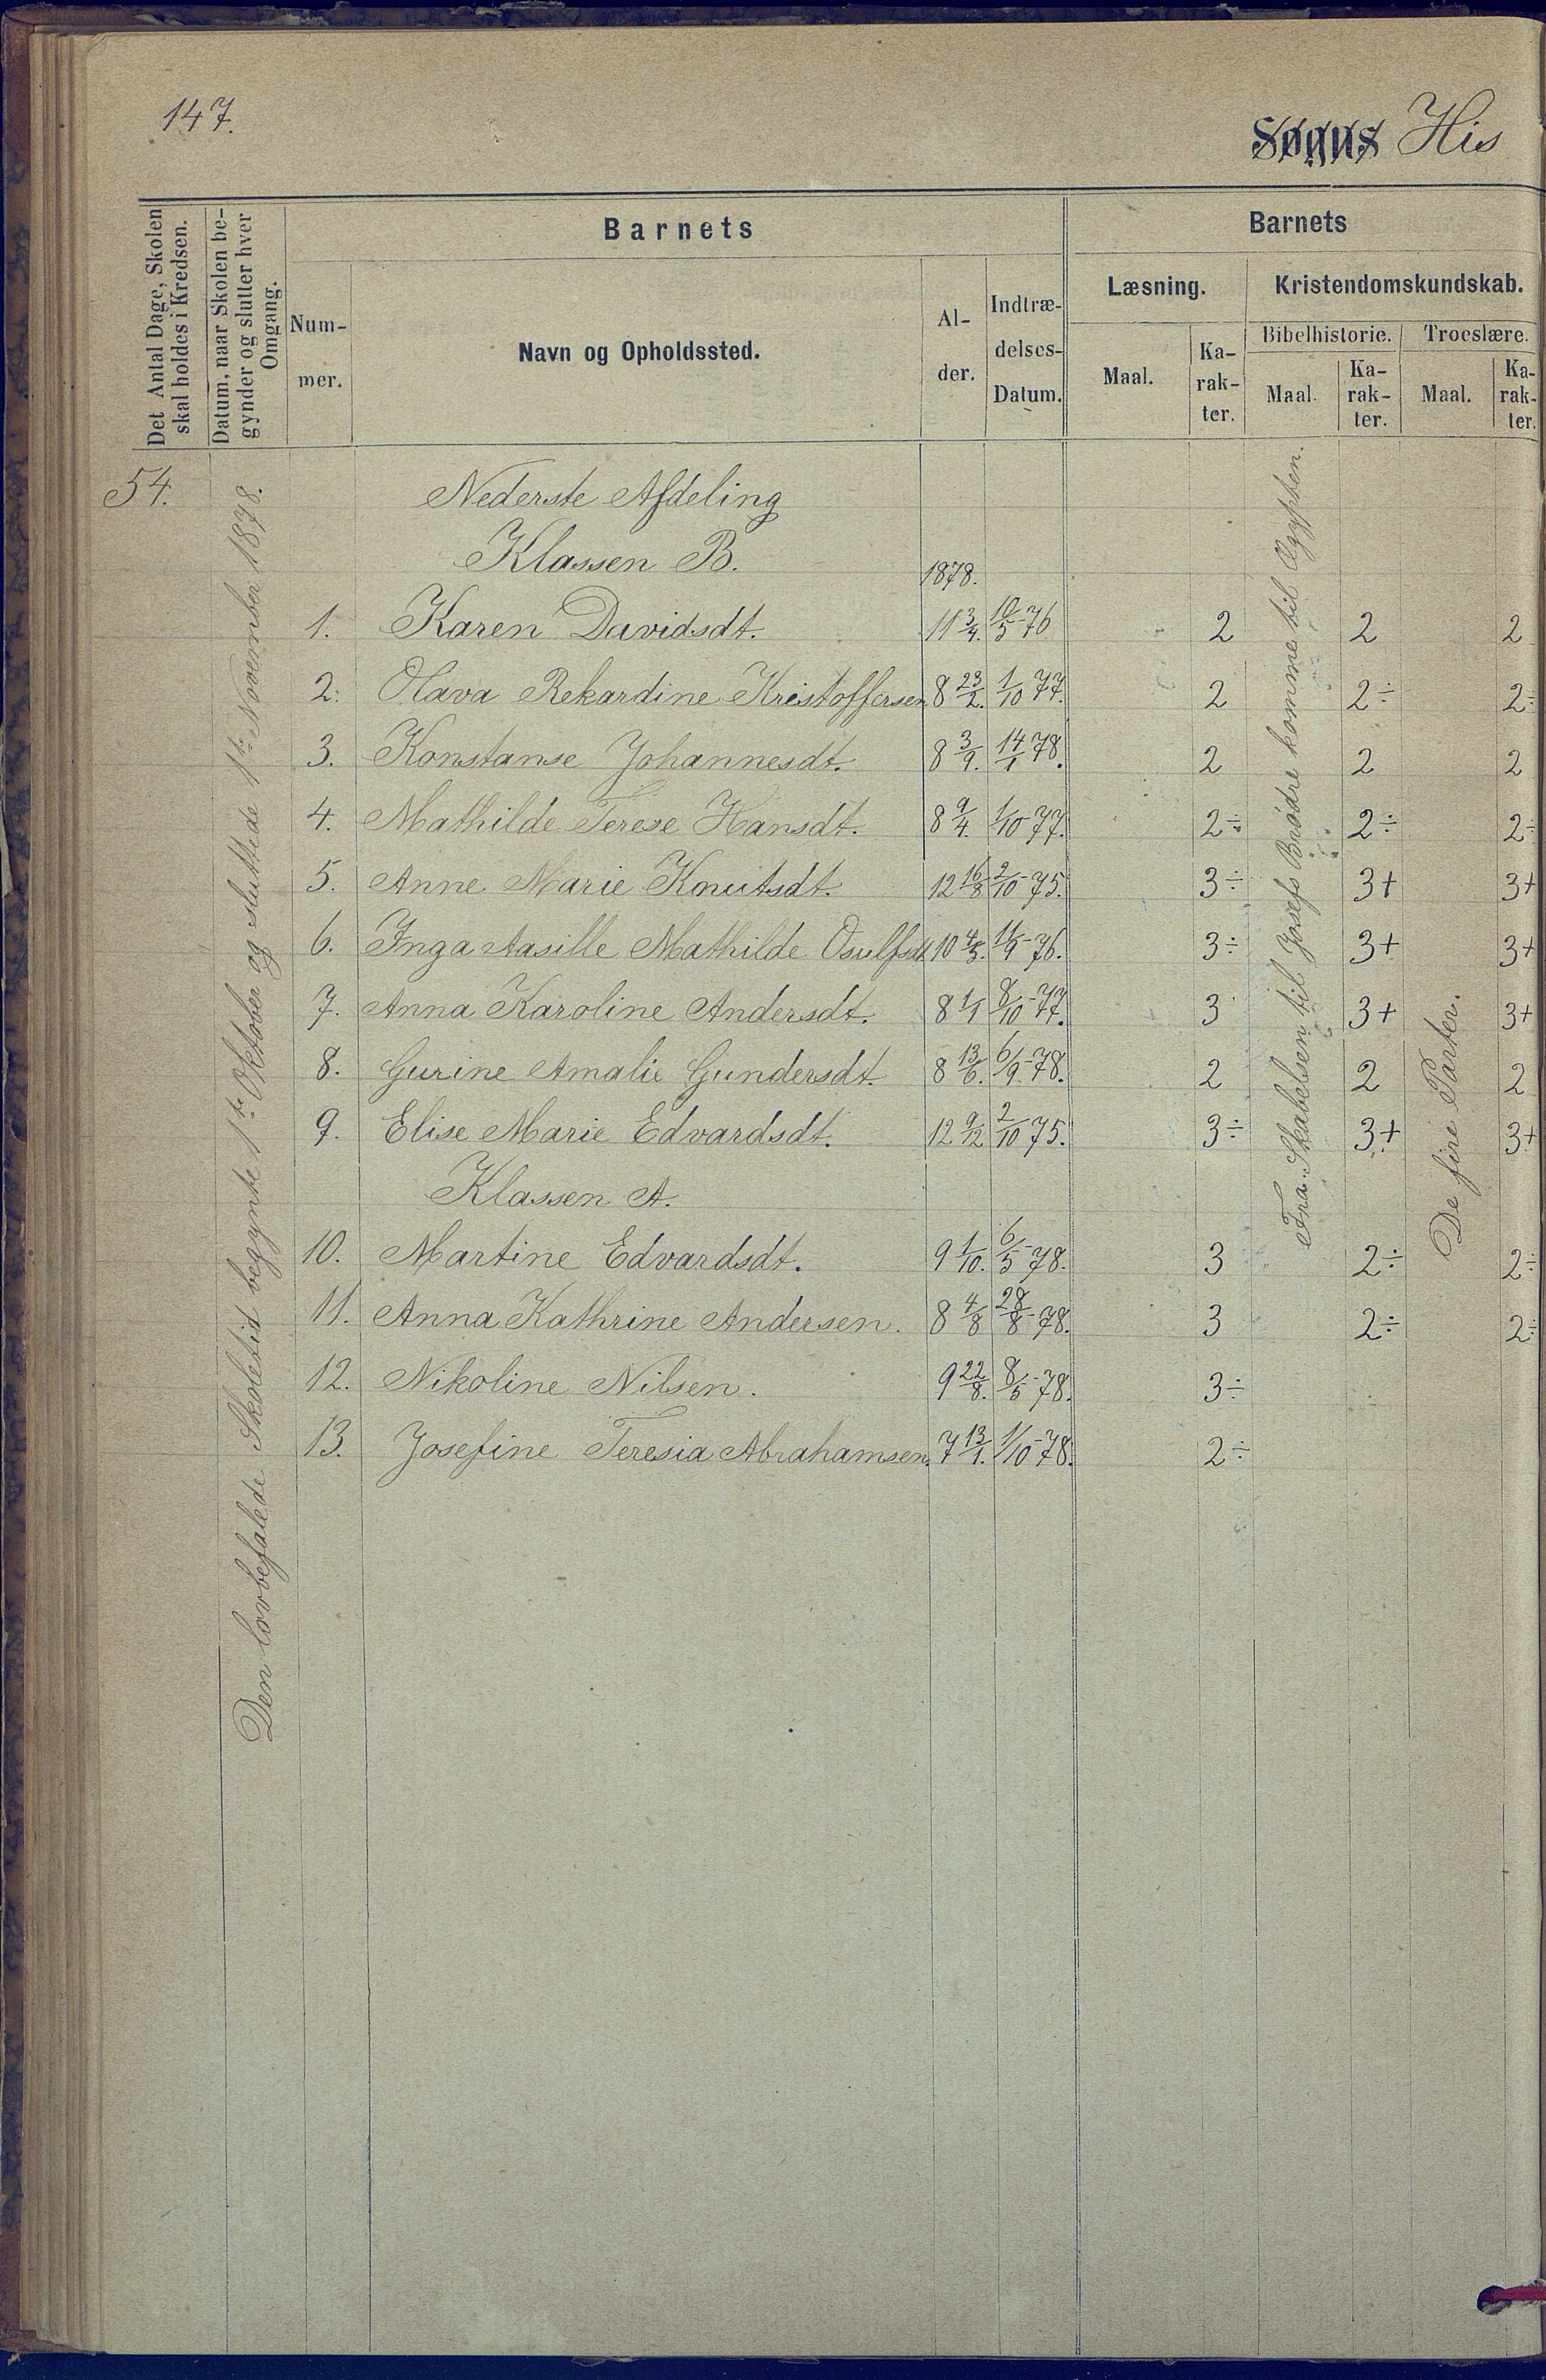 147.
Sogns His
Det Antal Dage, Skolen skal holdes i Kredsen.
Datum, naar Skolen begynder og slutter hver Omgang.
Barnets
Barnets
Nummer.
Navn og Opholdssted.
Alder.
Indtrædelses-Datum.
Læsning.
Kristendomskundskab.
Maal.
Karakter.
Bibelhistorie.
Troeslære.
Maal.
Karakter.
Maal.
Karakter.
54.
Den lovbefalede Skoletid begynte 1ste Oktober og sluttede 1ste November 1878.
Nederste Afdeling
Klassen B.
1878.
Fra Skabelsen til Josefs Brødre komme til Ægypten.
De fire Parter.
1. Karen Davidsdt. 11 3/4. 10/5-76 2 2 2
2. Olava Rekardine Kristoffersen 8 23/2. 1/10 77. 2 2÷ 2÷
3. Konstanse Johannesdt. 8 3/9. 14/1 78. 2 2 2
4. Mathilde Terese Hansdt. 8 9/4. 1/10 77. 2÷ 2÷ 2÷
5. Anne Marie Knutsdt. 12 16/8 2/10-75. 3÷ 3+ 3+
6. Inga Aasille Mathilde Osulfsdt 10 4/5. 11/9-76. 3÷ 3+ 3+
7. Anna Karoline Andersdt. 8 1/1 8/10-77. 3 3+ 3+
8. Gurine Amalie Gundersdt. 8 13/6. 6/9-78. 2 2 2
9. Elise Marie Edvardsdt. 12 9/12 2/10 75. 3÷ 3+ 3+
Klassen A.
10. Martine Edvardsdt. 9 1/10. 6/5-78. 3 2÷ 2÷
11. Anna Kathrine Andersen. 8 4/8 28/8-78. 3 2÷ 2÷
12. Nikoline Nilsen. 9 22/8. 8/5-78. 3÷
13. Josefine Teresia Abrahamsen. 7 13/1. 1/10-78. 2÷